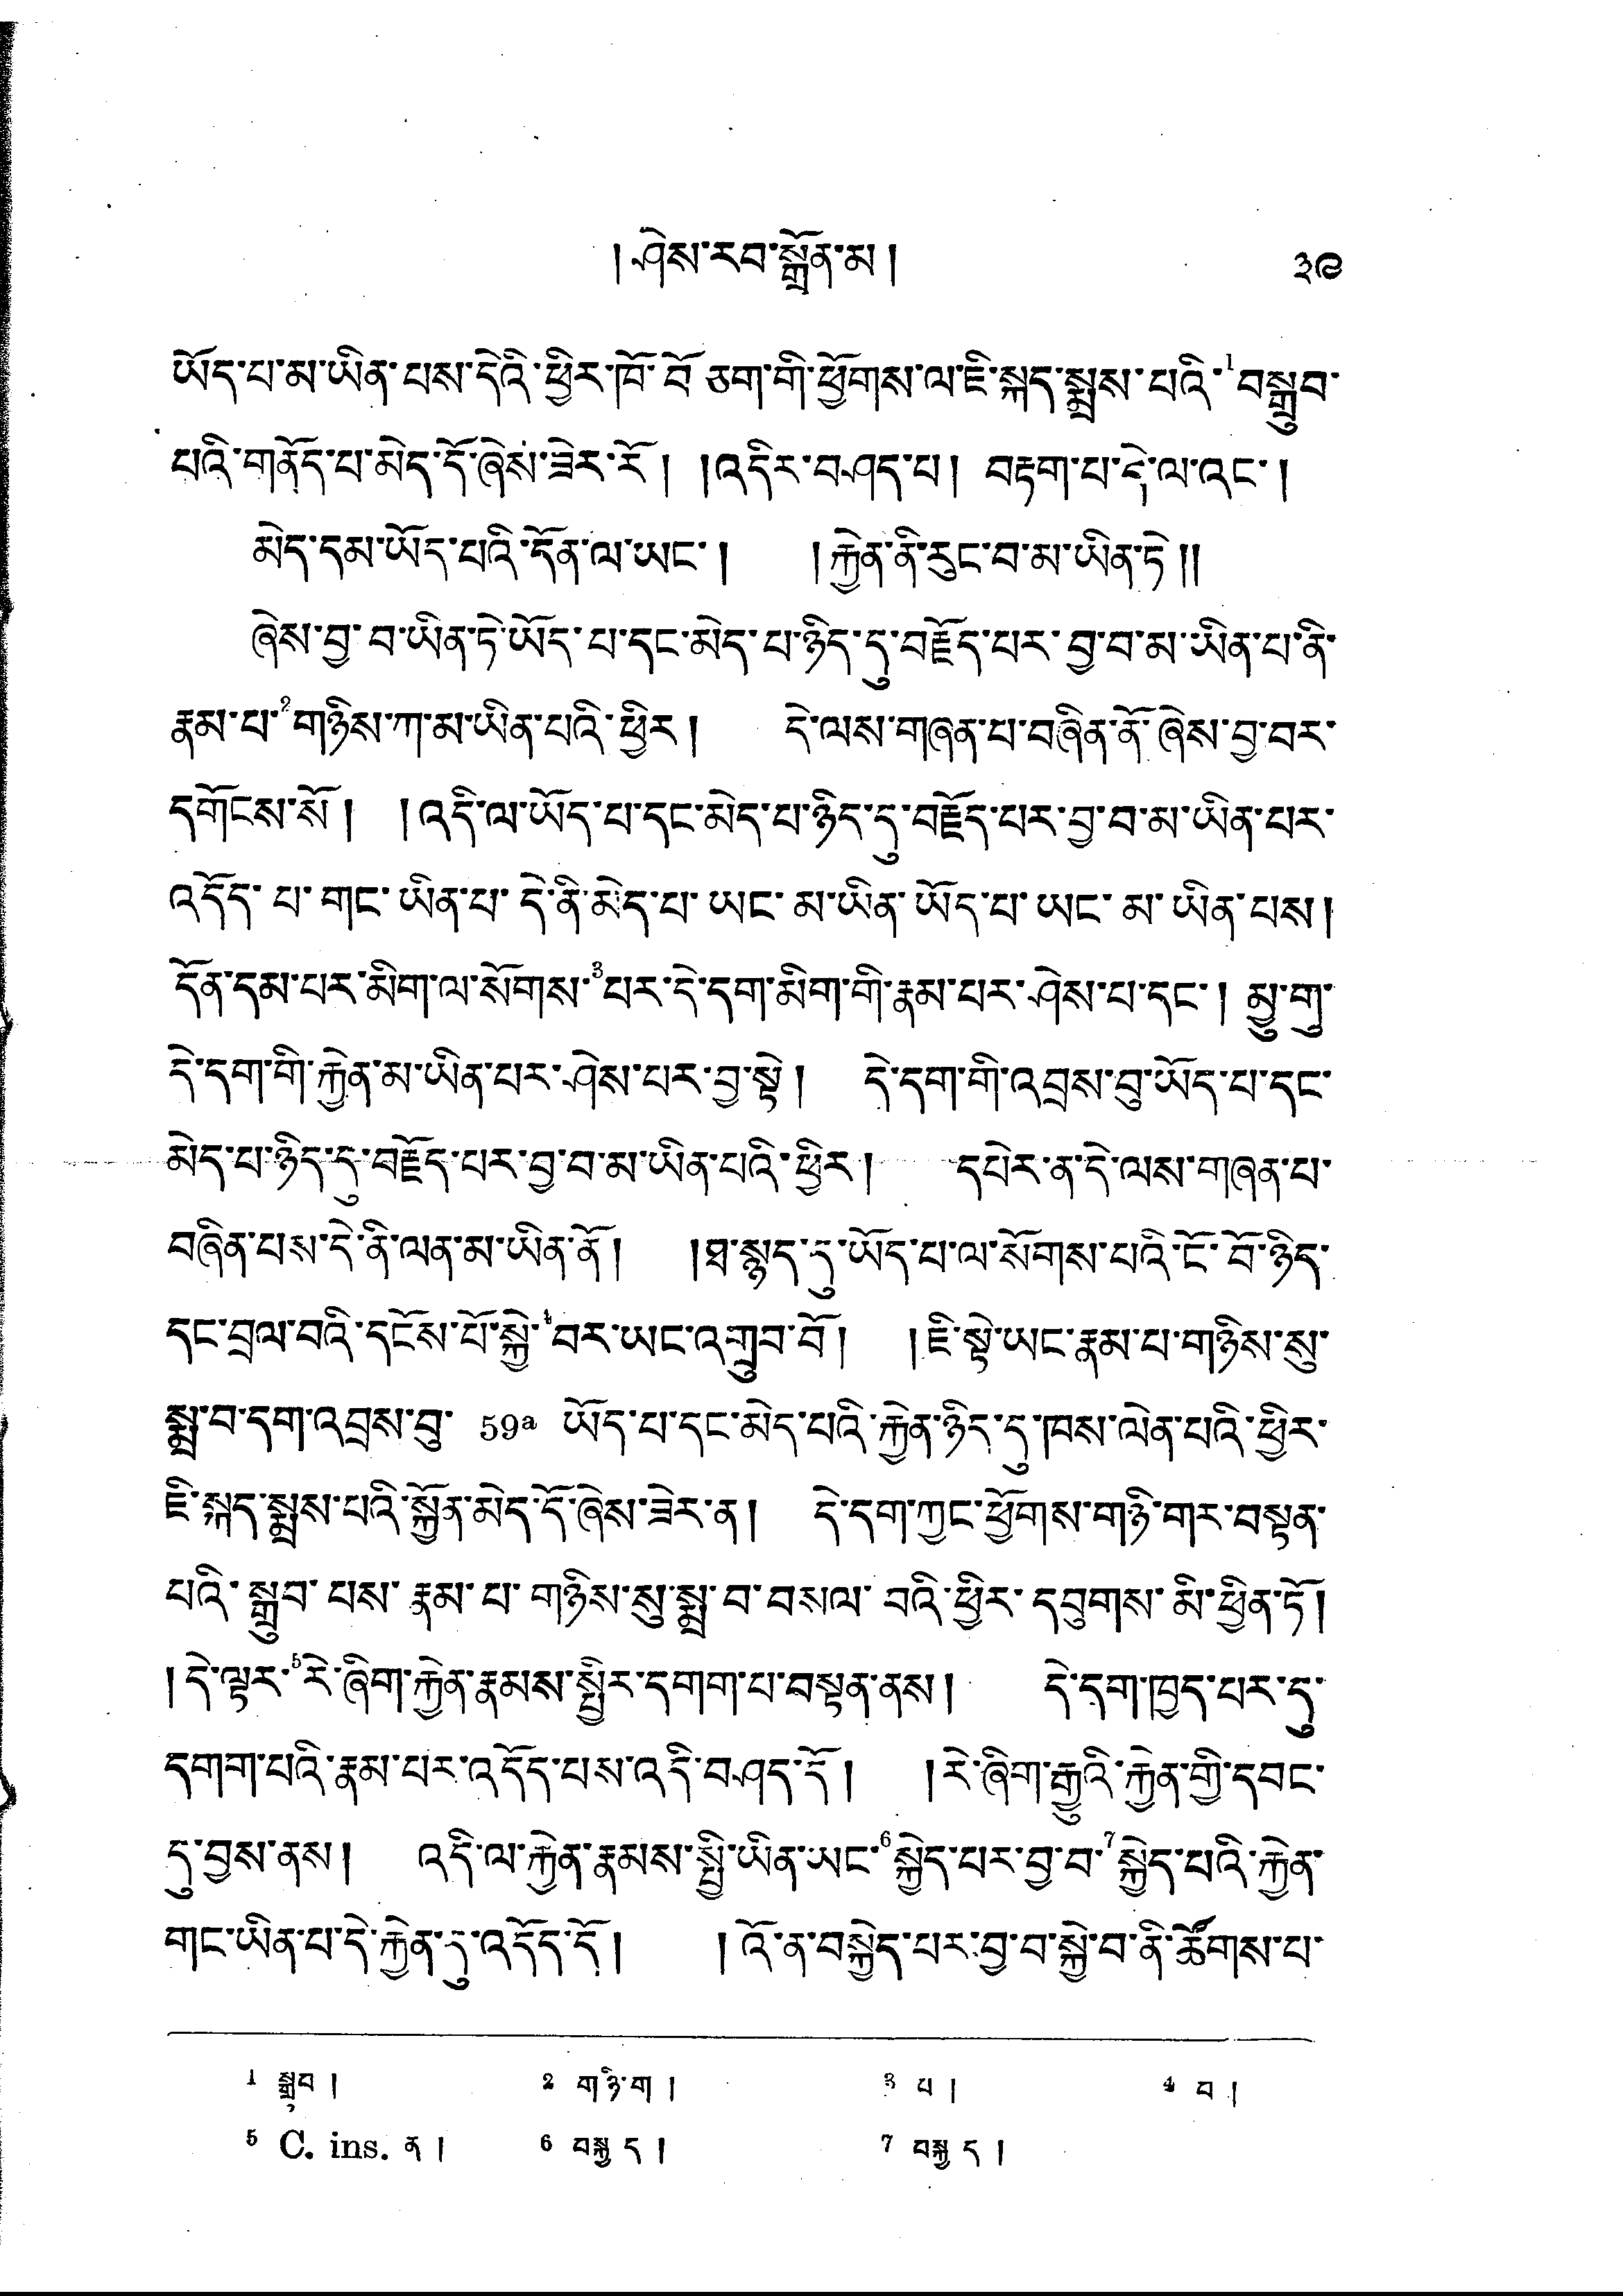 ། ཤེས་རབ་སྒྲོན་མ །
༣༩
ཡོད་པ་མ་ཡིན་པས་དེའི་ཕྱིར་ཁོ་བོ་ཅག་གི་ཕྱོགས་ལ་ཇི་སྐད་སྨྲས་པའི་¹བསྒྲུབ་
པའི་གནོད་པ་མེད་དོ་ཞེས་ཟེར་རོ། །འདིར་བཤད་པ། བརྟག་པ་དེ་ལ་འང་།
མེད་དམ་ཡོད་པའི་དོན་ལ་ཡང་། །རྐྱེན་ནི་རུང་བ་མ་ཡིན་ཏེ།།
ཞེས་བྱ་བ་ཡིན་ཏེ་ཡོད་པ་དང་མེད་པ་ཉིད་དུ་བརྗོད་པར་བྱ་བ་མ་ཡིན་པ་ནི་
རྣམ་པ་²གཉིས་ཀ་མ་ཡིན་པའི་ཕྱིར། དེ་ལས་གཞན་པ་བཞིན་ནོ་ཞེས་བྱ་བར་
དགོངས་སོ། །འདི་ལ་ཡོད་པ་དང་མེད་པ་ཉིད་དུ་བརྗོད་པར་བྱ་བ་མ་ཡིན་པར་
འདོད་པ་གང་ཡིན་པ་དེ་ནི་མེད་པ་ཡང་མ་ཡིན་ཡོད་པ་ཡང་མ་ཡིན་པས།
དོན་དམ་པར་མིག་ལ་སོགས་³པར་དེ་དག་མིག་གི་རྣམ་པར་ཤེས་པ་དང་། མྱུ་གུ་
དེ་དག་གི་རྐྱེན་མ་ཡིན་པར་ཤེས་པར་བྱ་སྟེ། དེ་དག་གི་འབྲས་བུ་ཡོད་པ་དང་
མེད་པ་ཉིད་དུ་བརྗོད་པར་བྱ་བ་མ་ཡིན་པའི་ཕྱིར། དཔེར་ན་དེ་ལས་གཞན་པ་
བཞིན་པས་དེ་ནི་ལན་མ་ཡིན་ནོ། །ཐ་སྙད་དུ་ཡོད་པ་ལ་སོགས་པའི་ངོ་བོ་ཉིད་
དང་བྲལ་བའི་དངོས་པོ་སྐྱེ་⁴བར་ཡང་འགྲུབ་བོ། །ཇི་སྟེ་ཡང་རྣམ་པ་གཉིས་སུ་
སྨྲ་བ་དག་འབྲས་བུ་ 59ᵃ ཡོད་པ་དང་མེད་པའི་རྐྱེན་ཉིད་དུ་ཁས་ལེན་པའི་ཕྱིར་
ཇི་སྐད་སྨྲས་པའི་སྐྱོན་མེད་དོ་ཞེས་ཟེར་ན། དེ་དག་ཀྱང་ཕྱོགས་གཉི་གར་བསྟན་
པའི་སྒྲུབ་པས་རྣམ་པ་གཉིས་སུ་སྨྲ་བ་བསལ་བའི་ཕྱིར་དབུགས་མི་ཕྱིན་ཏོ།
།དེ་ལྟར་⁵རེ་ཞིག་རྐྱེན་རྣམས་སྤྱིར་དགག་པ་བསྟན་ནས། དེ་དག་ཁྱད་པར་དུ་
དགག་པའི་རྣམ་པར་འདོད་པས་འདི་བཤད་དོ། །རེ་ཞིག་རྒྱུའི་རྐྱེན་གྱི་དབང་
དུ་བྱས་ནས། འདི་ལ་རྐྱེན་རྣམས་སྤྱི་ཡིན་ཡང་⁶སྐྱེད་པར་བྱ་བ་⁷སྐྱེད་པའི་རྐྱེན་
གང་ཡིན་པ་དེ་རྐྱེན་དུ་འདོད་དོ། །འོ་ན་བསྐྱེད་པར་བྱ་བ་སྐྱེ་བ་ནི་ཚོགས་པ་
¹ སྒྲུབ། ² གཉི་ག། ³ པ། ⁴ བ།
⁵ C. ins. ན། ⁶ བསྐྱད། ⁷ བསྐྱད།